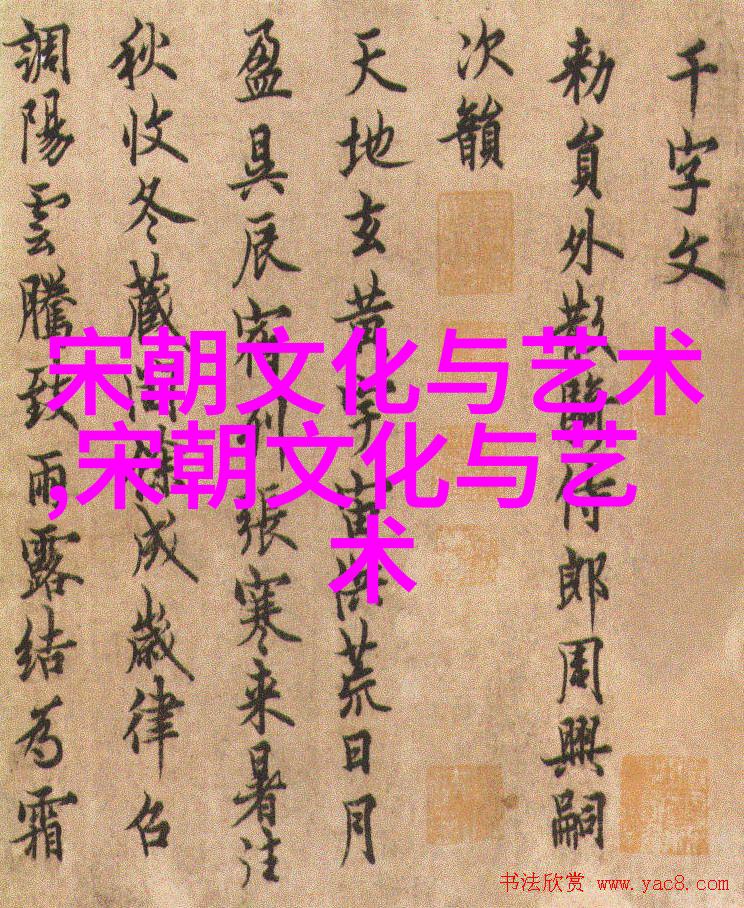 千字文
勑員外散騎侍郎周興嗣
次韻
天地玄黃宇宙洪荒日月
盈昃辰宿列張寒来暑往
秋收冬藏閏餘成歲律召
調陽雲騰致雨露結為霜
宋朝文化与艺术
,宋朝文化与艺
术
书法欣赏 www.yac8.com